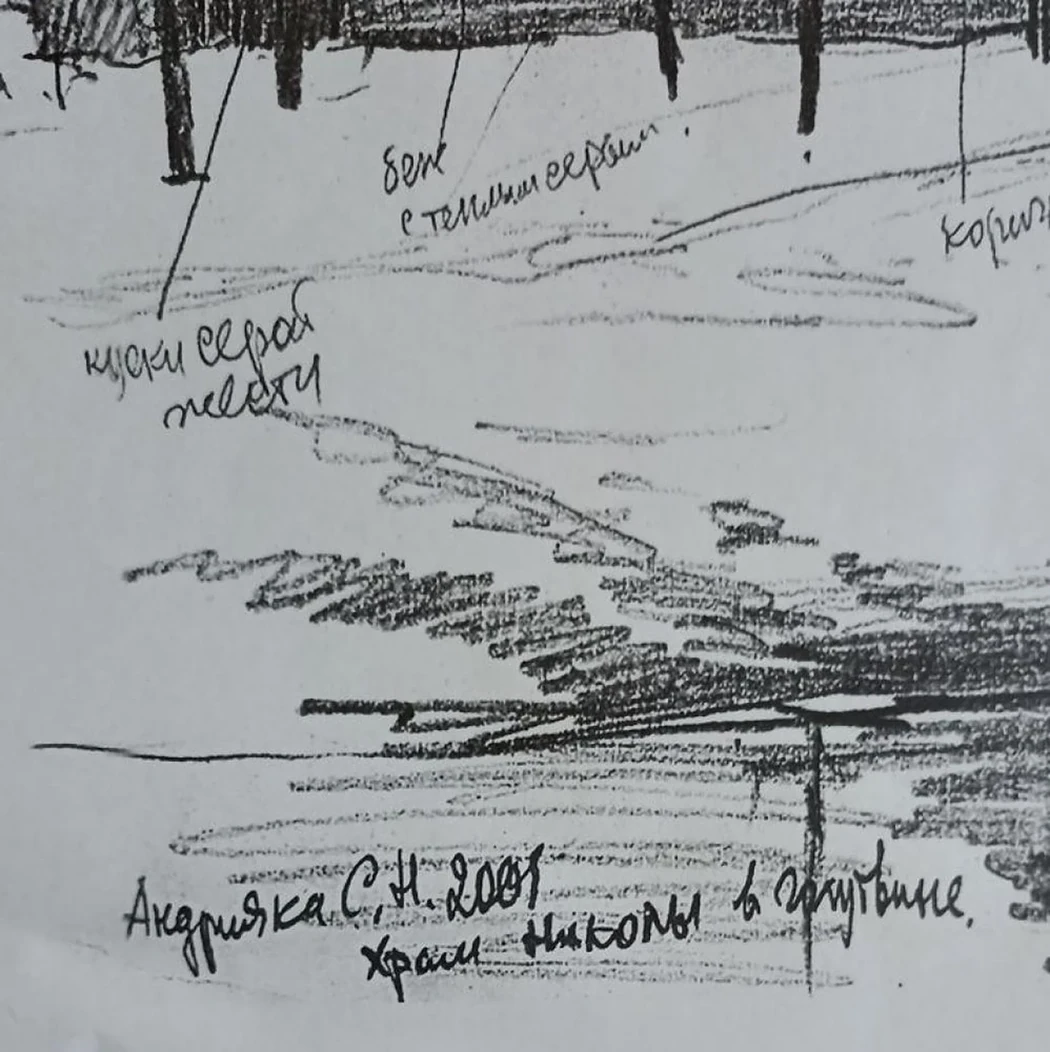 беж
с теплым серым.
корич
куски серой
жести
Андрияка С.Н. 2001
Храм Николы в Голутвине.